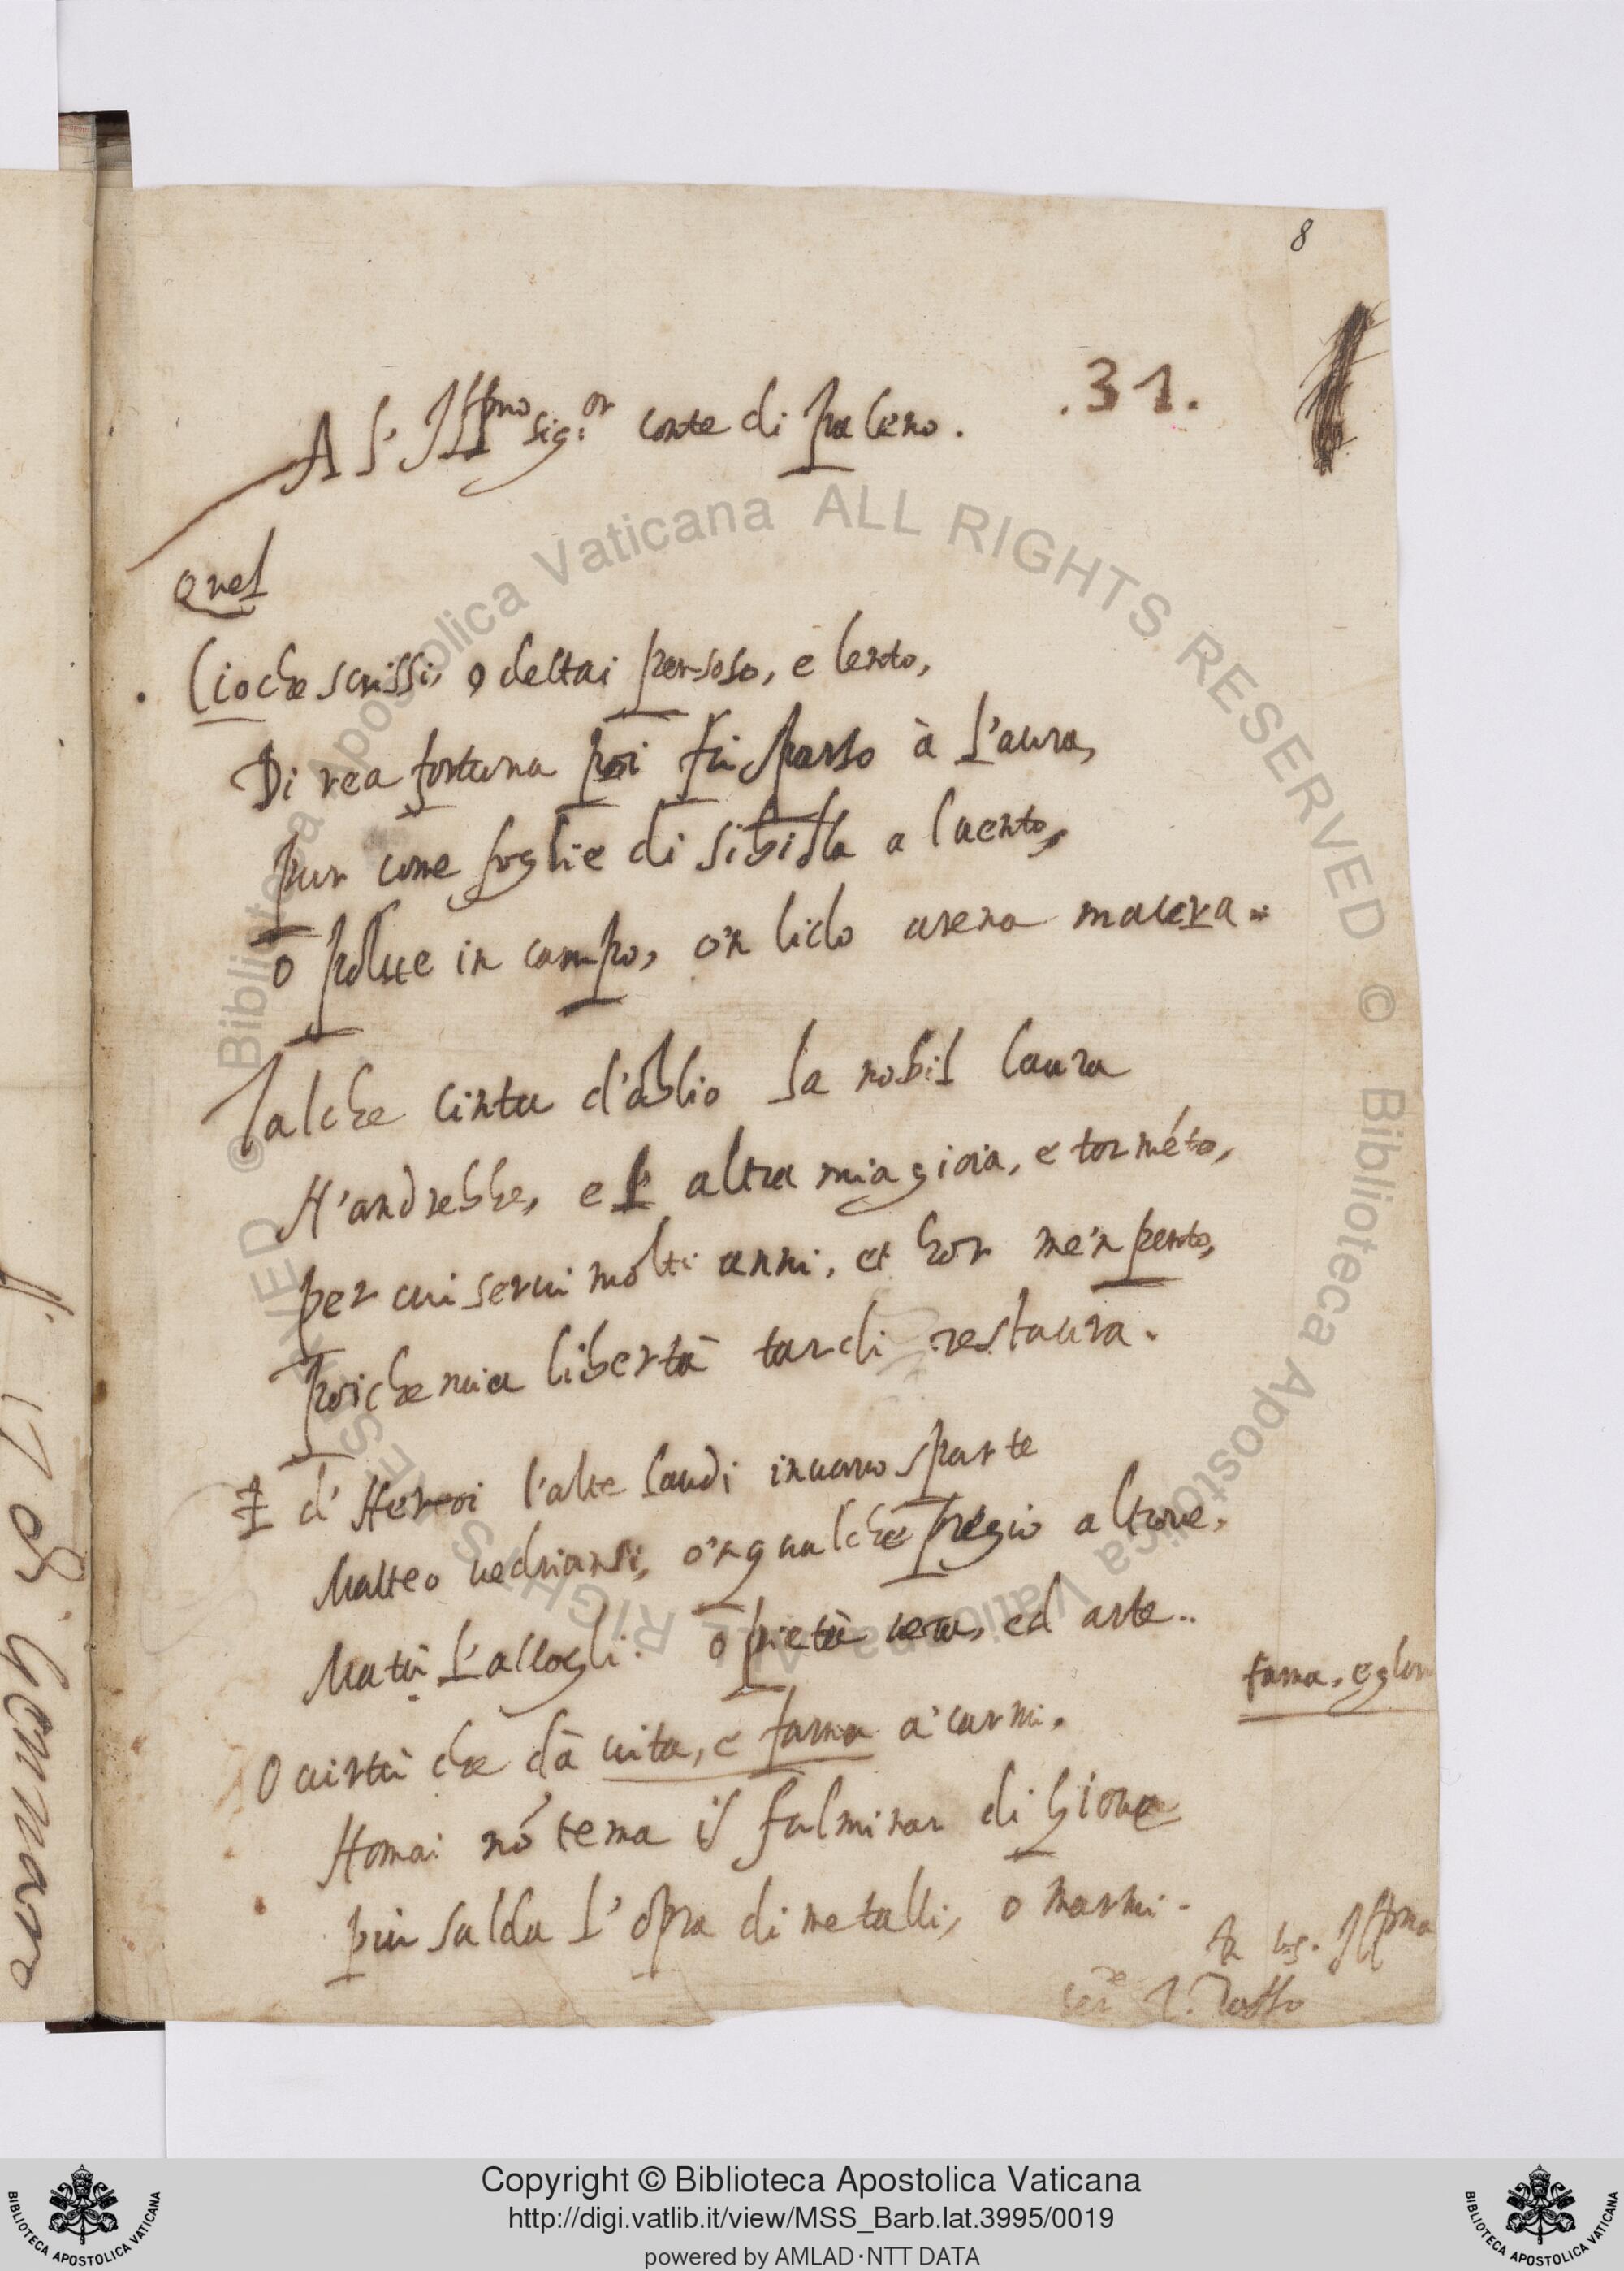 8
.31.
A l'Ill.mo Sig.or conte di paleno.
Quel
Cio che scrissi, o dettai pensoso, e lento,
Di rea fortuna poi fu sparso à l'aura,
pur come foglie di Sibilla a l uento,
o polue in campo, o'n lido arena maura.
Talche cinta d'oblio la nobil laura
N'andrebbe, e l' altra mia gioia, e torméto,
per cui serui molti anni, et hor me'n pento,
poiche mia libertà tardi restaura.
E d' Heroi l'alte laudi in uano sparte
Matteo uedriansi, o'n qualche pregio altroue.
Ma tu l'accogli. o pietà uera, ed arte..
fama, e glor
O uirtù che dà uita, e fama a' carmi.
Homai nó tema il fulminar di Gioue
piu salda l'opra di metalli, o marmi.
Ill.ma
ser.re T. Tasso
Copyright © Biblioteca Apostolica Vaticana
http://digi.vatlib.it/view/MSS_Barb.lat.3995/0019
powered by AMLAD·NTT DATA
BIBLIOTECA APOSTOLICA VATICANA
BIBLIOTECA APOSTOLICA VATICANA
© Biblioteca Apostolica Vaticana ALL RIGHTS RESERVED © Biblioteca Apostolica Vaticana ALL RIGHTS RESERVED